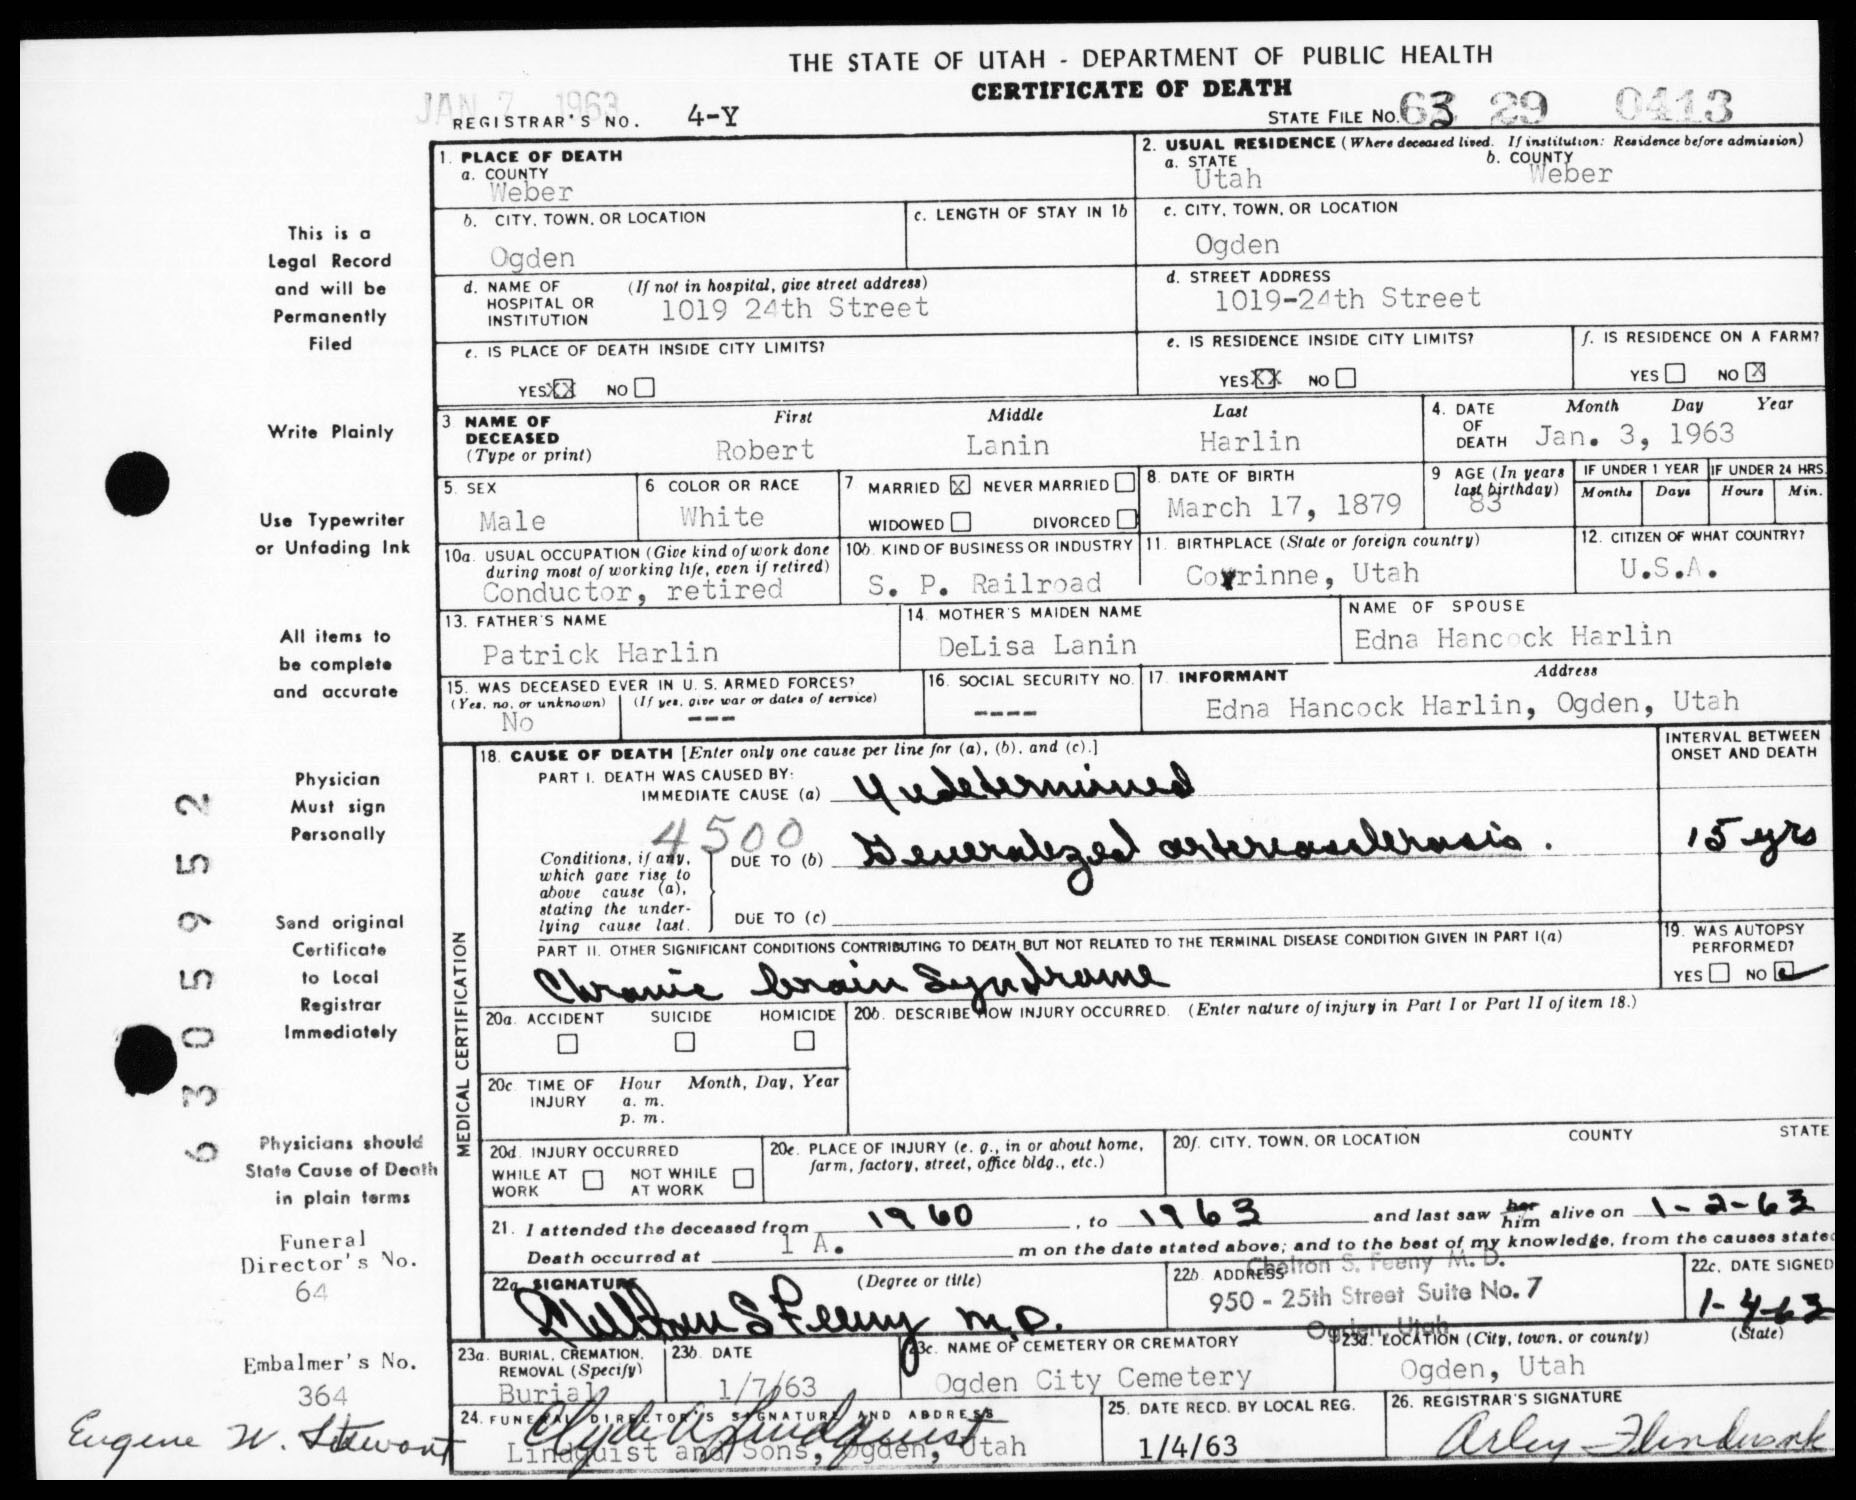 THE STATE OF UTAH - DEPARTMENT OF PUBLIC HEALTH
CERTIFICATE OF DEATH
JAN 7 1963
REGISTRAR'S NO. 4-Y
STATE FILE NO. 63 29 0413
1. PLACE OF DEATH
a. COUNTY
Weber
2. USUAL RESIDENCE (Where deceased lived. If institution: Residence before admission)
a. STATE b. COUNTY
Utah Weber
b. CITY, TOWN, OR LOCATION
Ogden
c. LENGTH OF STAY IN 1b
c. CITY, TOWN, OR LOCATION
Ogden
d. NAME OF HOSPITAL OR INSTITUTION (If not in hospital, give street address)
1019 24th Street
d. STREET ADDRESS
1019-24th Street
e. IS PLACE OF DEATH INSIDE CITY LIMITS?
YES XX NO
e. IS RESIDENCE INSIDE CITY LIMITS?
YES XX NO
f. IS RESIDENCE ON A FARM?
YES NO X
3 NAME OF DECEASED (Type or print)
First Middle Last
Robert Lanin Harlin
4. DATE OF DEATH
Month Day Year
Jan. 3, 1963
5. SEX
Male
6 COLOR OR RACE
White
7 MARRIED X NEVER MARRIED
WIDOWED DIVORCED
8. DATE OF BIRTH
March 17, 1879
9 AGE (In years last birthday)
83
IF UNDER 1 YEAR
Months Days
IF UNDER 24 HRS.
Hours Min.
10a. USUAL OCCUPATION (Give kind of work done during most of working life, even if retired)
Conductor, retired
10b. KIND OF BUSINESS OR INDUSTRY
S. P. Railroad
11. BIRTHPLACE (State or foreign country)
Corrinne, Utah
12. CITIZEN OF WHAT COUNTRY?
U.S.A.
13. FATHER'S NAME
Patrick Harlin
14. MOTHER'S MAIDEN NAME
DeLisa Lanin
NAME OF SPOUSE
Edna Hancock Harlin
15. WAS DECEASED EVER IN U. S. ARMED FORCES?
(Yes, no, or unknown) (If yes, give war or dates of service)
No ---
16. SOCIAL SECURITY NO.
----
17. INFORMANT Address
Edna Hancock Harlin, Ogden, Utah
MEDICAL CERTIFICATION
18. CAUSE OF DEATH [Enter only one cause per line for (a), (b), and (c).]
INTERVAL BETWEEN ONSET AND DEATH
PART I. DEATH WAS CAUSED BY:
IMMEDIATE CAUSE (a) Undetermined
4500
Conditions, if any, which gave rise to above cause (a), stating the underlying cause last.
DUE TO (b) Generalized arteriosclerosis. 15 yrs
DUE TO (c)
PART II. OTHER SIGNIFICANT CONDITIONS CONTRIBUTING TO DEATH BUT NOT RELATED TO THE TERMINAL DISEASE CONDITION GIVEN IN PART I(a)
Chronic brain Syndrome
19. WAS AUTOPSY PERFORMED?
YES NO
20a. ACCIDENT SUICIDE HOMICIDE
20b. DESCRIBE HOW INJURY OCCURRED. (Enter nature of injury in Part I or Part II of item 18.)
20c. TIME OF INJURY Hour Month, Day, Year
a. m.
p. m.
20d. INJURY OCCURRED
WHILE AT WORK NOT WHILE AT WORK
20e. PLACE OF INJURY (e. g., in or about home, farm, factory, street, office bldg., etc.)
20f. CITY, TOWN, OR LOCATION COUNTY STATE
21. I attended the deceased from 1960, to 1963 and last saw her him alive on 1-2-63
Death occurred at 1 A. m on the date stated above; and to the best of my knowledge, from the causes state
22a. SIGNATURE (Degree or title)
Chelton S Feeny M.D.
22b. ADDRESS
Chelton S. Feeny M. D.
950 - 25th Street Suite No. 7
Ogden, Utah
22c. DATE SIGNED
1-4-63
23a. BURIAL, CREMATION, REMOVAL (Specify)
Burial
23b. DATE
1/7/63
23c. NAME OF CEMETERY OR CREMATORY
Ogden City Cemetery
23d. LOCATION (City, town, or county) (State)
Ogden, Utah
24. FUNERAL DIRECTOR'S SIGNATURE AND ADDRESS
Clyde A Lindquist
Lindquist and Sons, Ogden, Utah
25. DATE RECD. BY LOCAL REG.
1/4/63
26. REGISTRAR'S SIGNATURE
Arley
This is a
Legal Record
and will be
Permanently
Filed
Write Plainly
Use Typewriter
or Unfading Ink
All items to
be complete
and accurate
Physician
Must sign
Personally
Send original
Certificate
to Local
Registrar
Immediately
Physicians should
State Cause of Death
in plain terms
Funeral
Director's No.
64
Embalmer's No.
364
Eugene W. Stewart
6 3 0 5 9 5 5 2